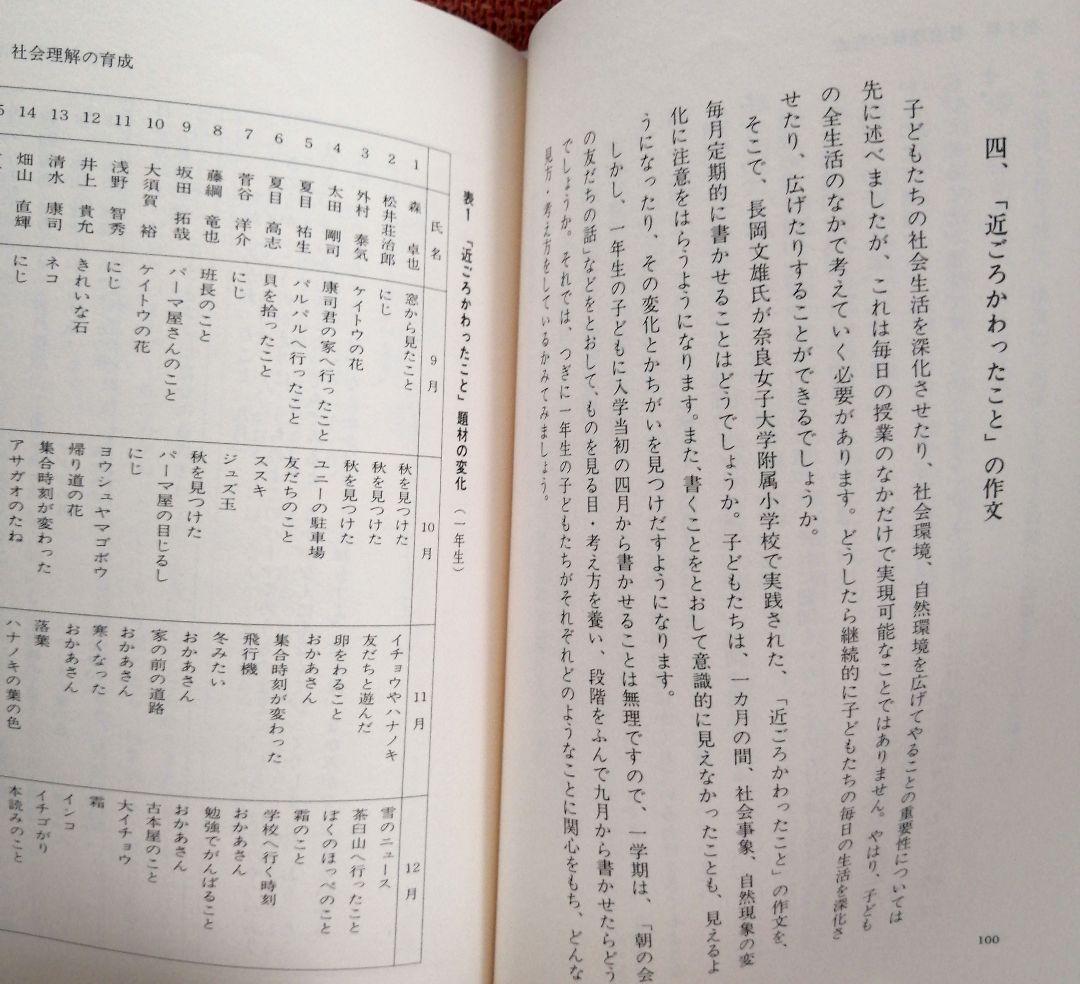 四、「近ごろかわったこと」の作文
子どもたちの社会生活を深化させたり、社会環境、自然環境を広げてやることの重要性については
先に述べましたが、これは毎日の授業のなかだけで実現可能なことではありません。やはり、子ども
の全生活のなかで考えていく必要があります。どうしたら継続的に子どもたちの毎日の生活を深化さ
せたり、広げたりすることができるでしょうか。
そこで、長岡文雄氏が奈良女子大学附属小学校で実践された、「近ごろかわったこと」の作文を、
毎月定期的に書かせることはどうでしょうか。子どもたちは、一カ月の間、社会事象、自然現象の変
化に注意をはらうようになります。また、書くことをとおして意識的に見えなかったことも、見えるよ
うになったり、その変化とかちがいを見つけだすようになります。
しかし、一年生の子どもに入学当初の四月から書かせることは無理ですので、一学期は、「朝の会
の友だちの話」などをとおして、ものを見る目・考え方を養い、段階をふんで九月から書かせたらどう
でしょうか。それでは、つぎに一年生の子どもたちがそれぞれどのようなことに関心をもち、どんな
見方・考え方をしているかみてみましょう。
100
社会理解の育成
表1 「近ごろかわったこと」題材の変化（一年生）
氏名 9月 10月 11月 12月
1 森 卓也 窓から見たこと 秋を見つけた イチョウやハナノキ 雪のニュース
2 松井荘治郎 にじ 秋を見つけた 友だちと遊んだ 茶臼山へ行ったこと
3 外村 泰気 ケイトウの花 秋を見つけた 卵をわること ぼくのほっぺのこと
4 太田 剛司 康司君の家へ行ったこと ユニーの駐車場 おかあさん 霜のこと
5 夏目 祐生 パルパルへ行ったこと 友だちのこと 集合時刻が変わった 学校へ行く時刻
6 夏目 高志 貝を拾ったこと ススキ 飛行機 おかあさん
7 菅谷 洋介 にじ ジュズ玉 冬みたい 勉強でがんばること
8 藤綱 竜也 班長のこと 秋を見つけた おかあさん おかあさん
9 坂田 拓哉 パーマ屋さんのこと パーマ屋の目じるし 家の前の道路 古本屋のこと
10 大須賀 裕 ケイトウの花 にじ おかあさん 大イチョウ
11 浅野 智秀 にじ ヨウシュヤマゴボウ 寒くなった 霜
12 井上 貴允 きれいな石 帰り道の花 おかあさん インコ
13 清水 康司 ネコ 集合時刻が変わった 落葉 イチゴがり
14 畑山 直輝 にじ アサガオのたね ハナノキの葉の色 本読みのこと